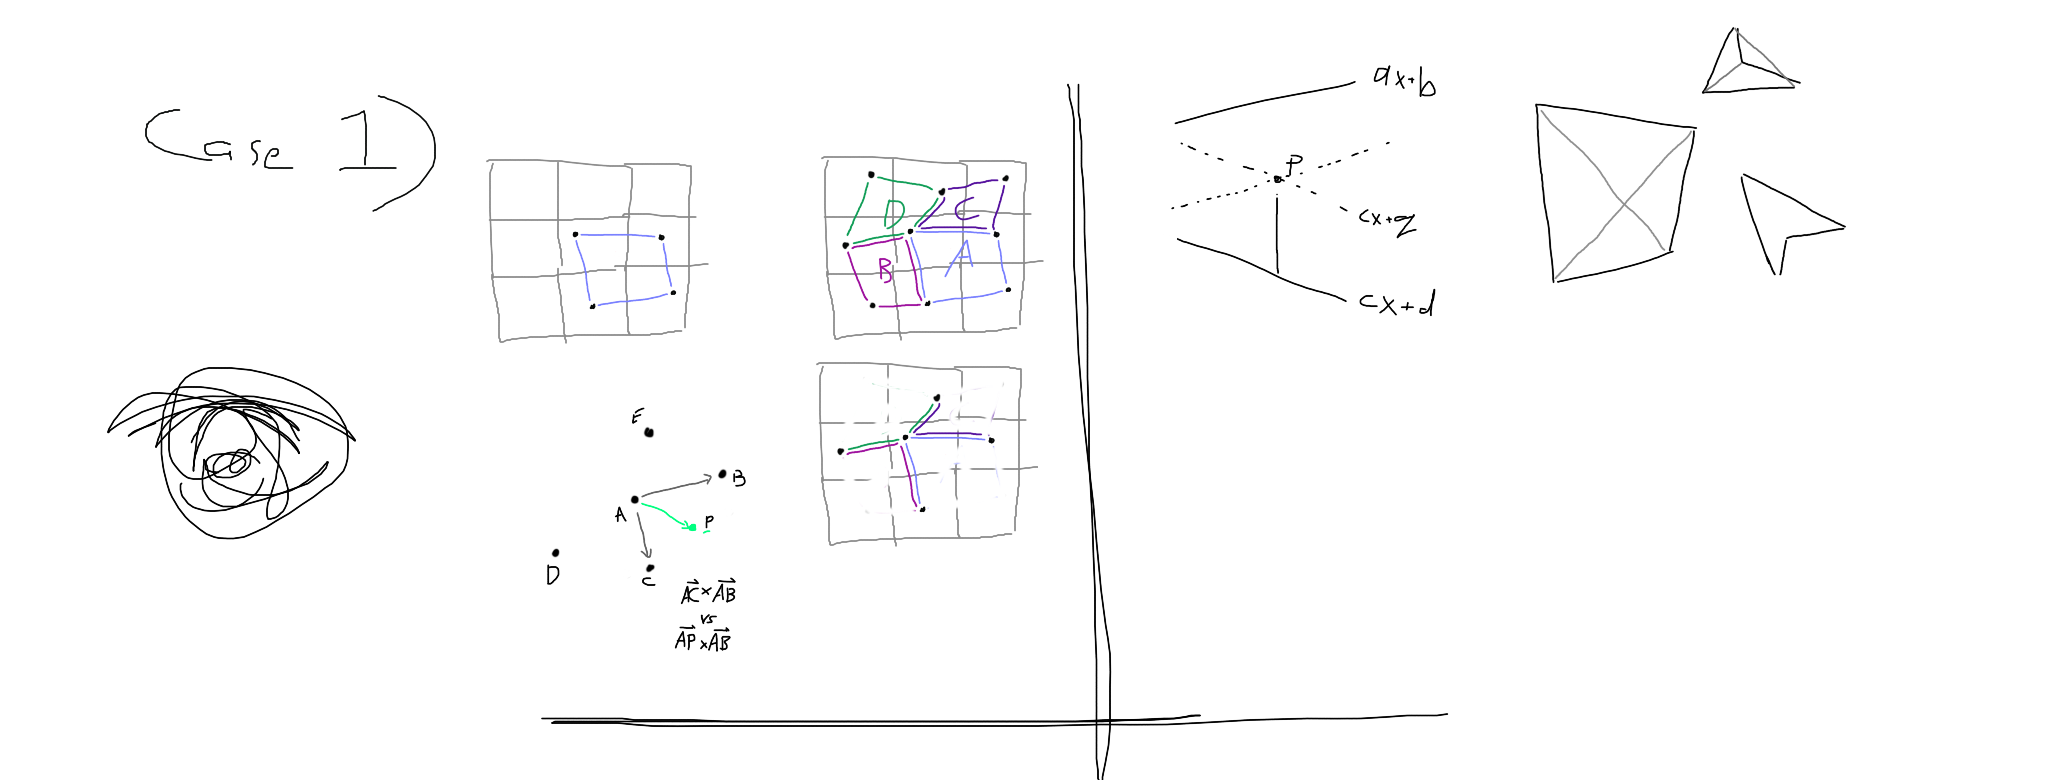 Case 1)
D
C
B
A
E
B
A
P
D
C
AC × AB
vs
AP × AB
ax+b
P
cx+q
cx+d